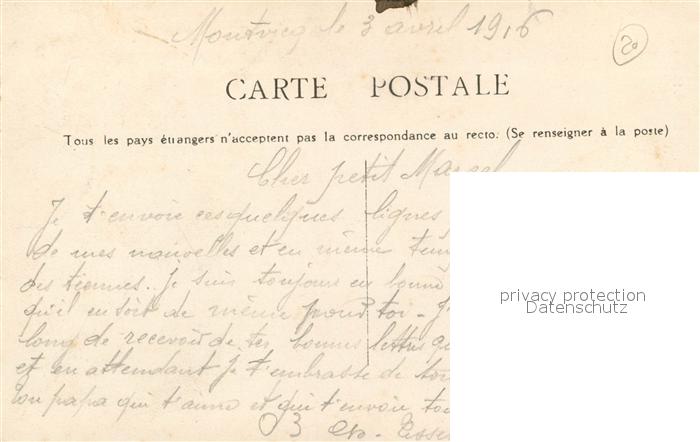 Montvicq le 3 avril 1916
20
CARTE POSTALE
Tous les pays étrangers n'acceptent pas la correspondance au recto. (Se renseigner à la poste)
Cher petit Marcel
Je t'envoie ces quelques lignes
de mes nouvelles et en même
des tiennes.. Je suis toujours en bonne
qu'il en soit de même pour toi -
long de recevoir de tes bonnes lettres
et en attendant je t'embrasse de
ton papa qui t'aime et qui t'envoie
privacy protection
Datenschutz